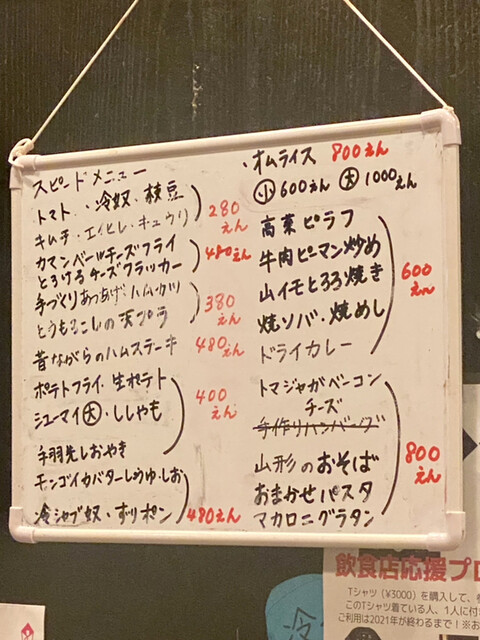 スピードメニュー
トマト・冷奴・枝豆
キムチ・エイヒレ・キュウリ
280えん
カマンベールチーズフライ
とろけるチーズクラッカー
480えん
手づくりあつあげ・ハムカツ
とうもろこしの天プラ
380えん
昔ながらのハムステーキ
480えん
ポテトフライ・生ポテト
シューマイ大・ししゃも
手羽先しおやき
400えん
モンゴイカバターしょうゆ・しお
冷シャブ奴・ずりポン
480えん
・オムライス 800えん
小 600えん 大 1000えん
高菜ピラフ
牛肉ピーマン炒め
山イモとろろ焼き
焼ソバ・焼めし
ドライカレー
600えん
トマジャガベーコン
チーズ
手作りハンバーグ
山形のおそば
おまかせパスタ
マカロニグラタン
800えん
飲食店応援プロ
Tシャツ(¥3000)を購入して、
このTシャツ着ている人、1人に付
ご利用は2021年が終わるまで!※お